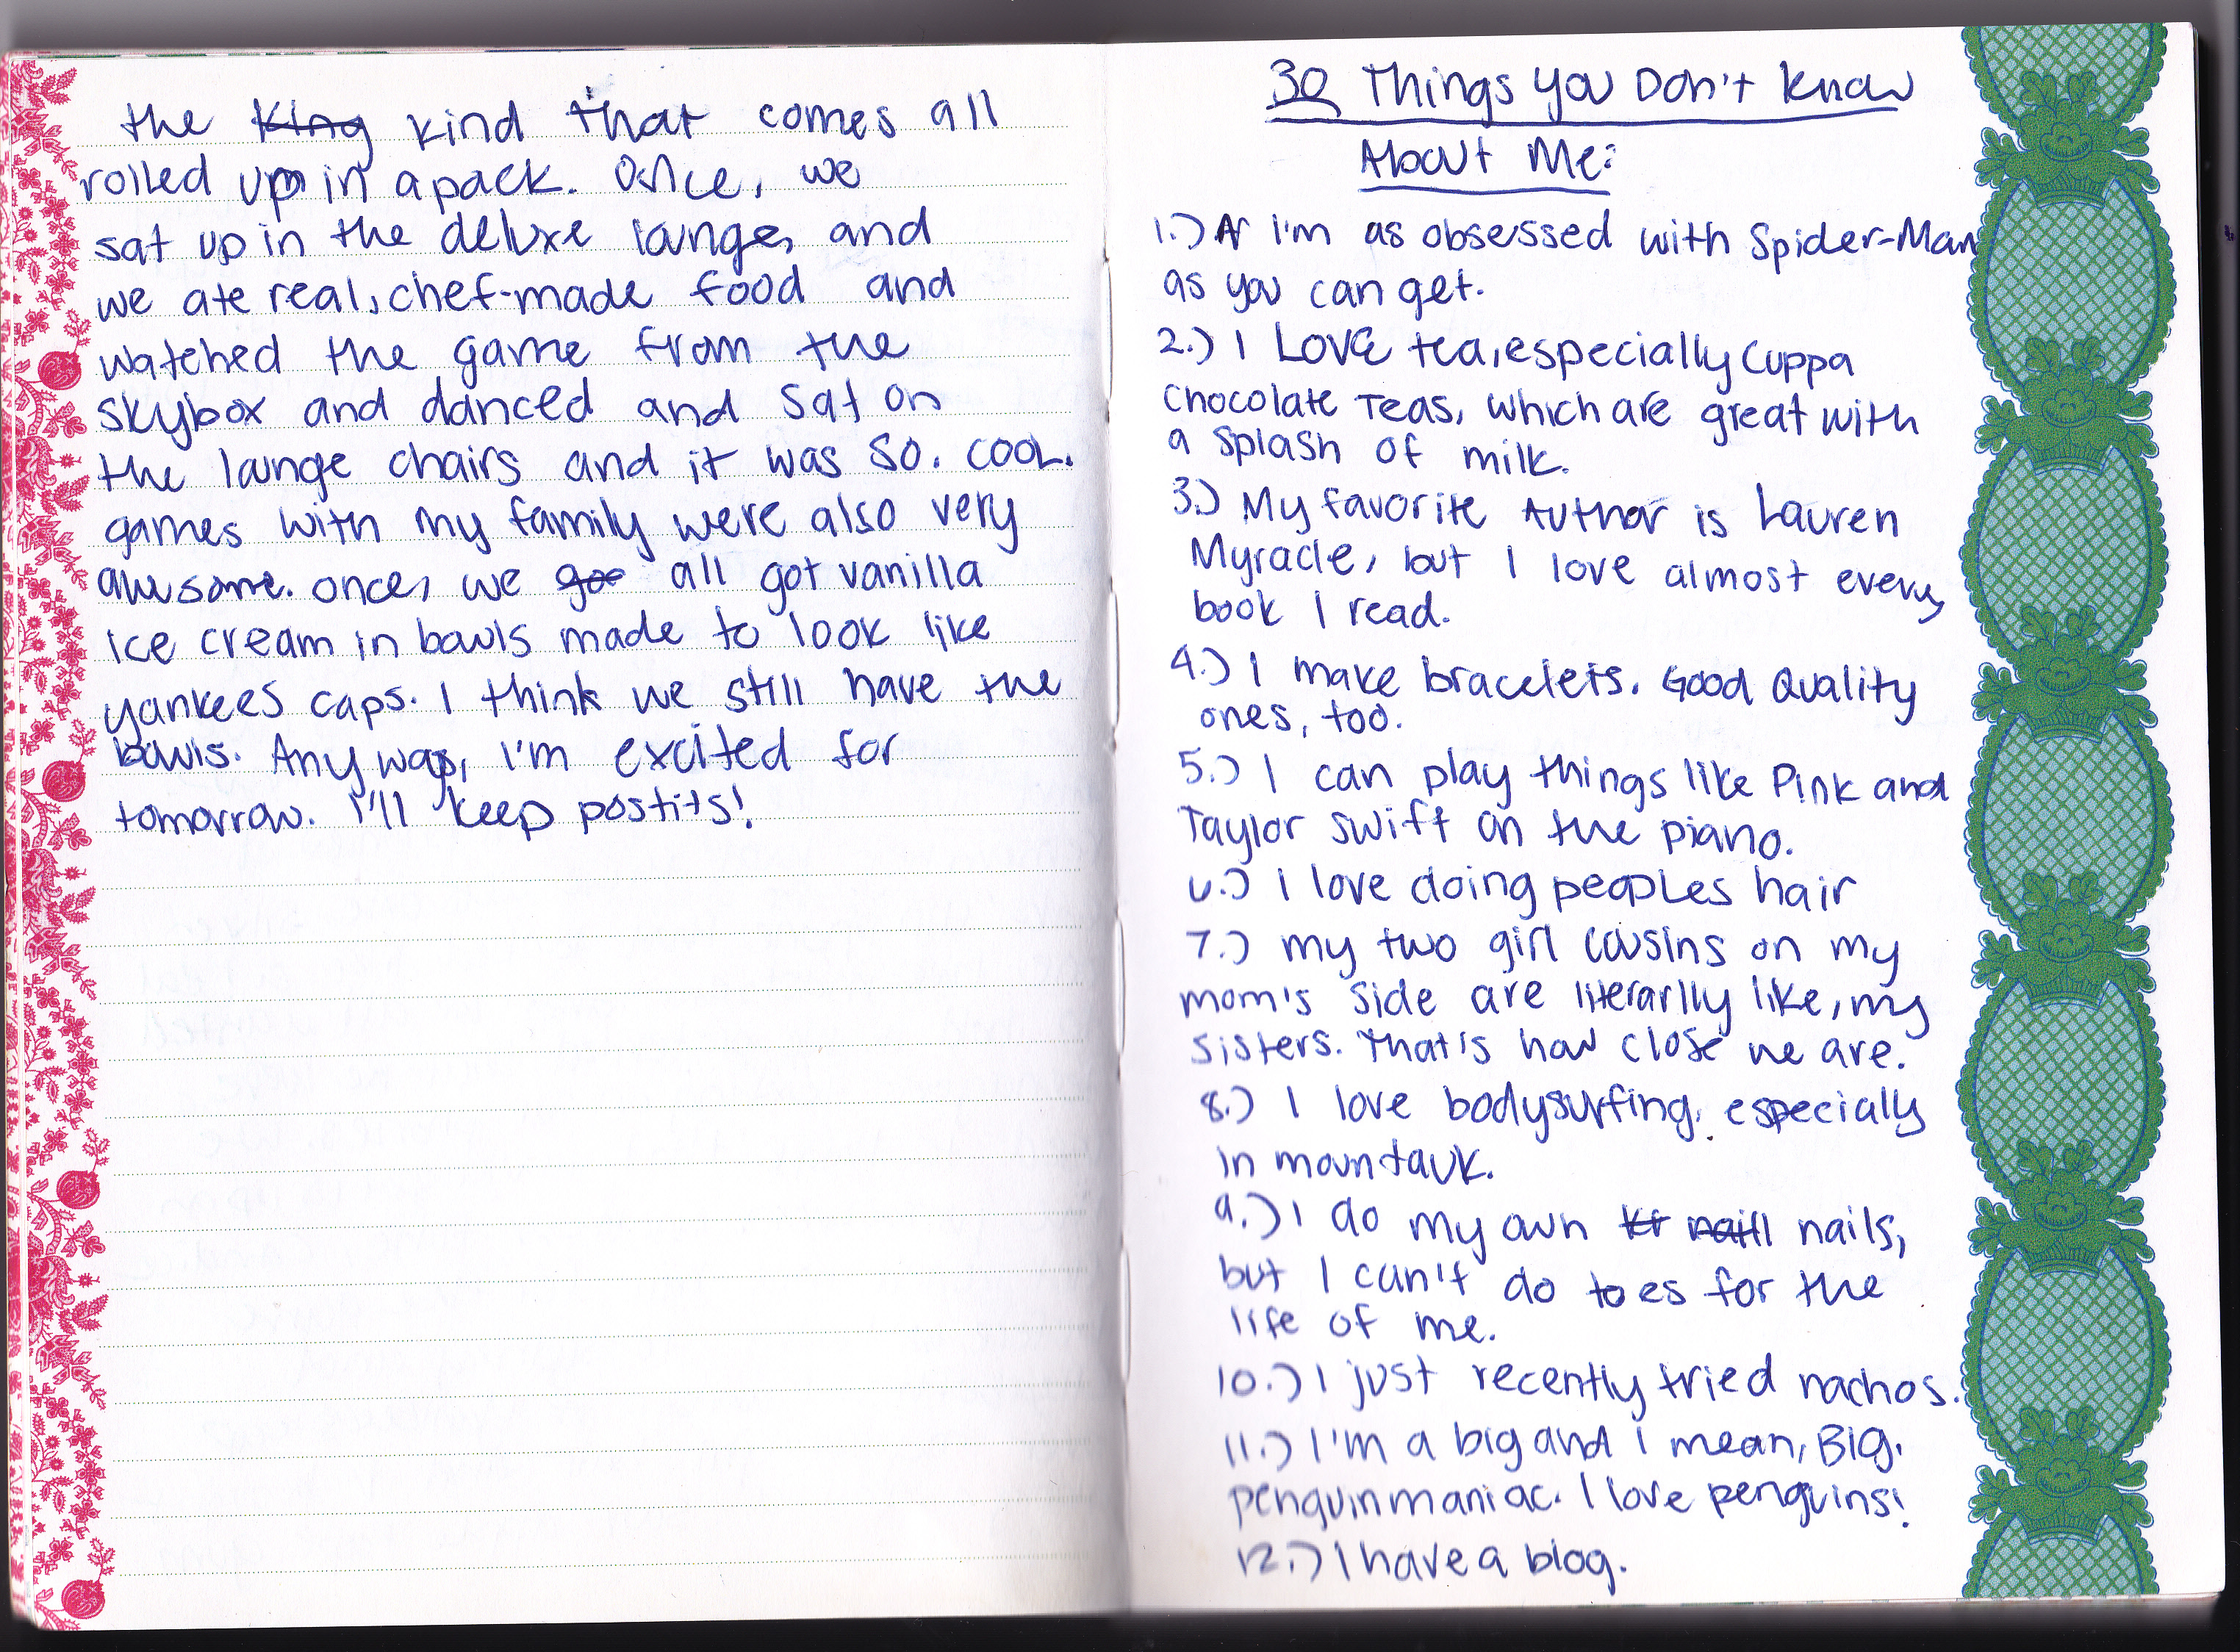 the King kind that comes all
rolled up in a pack. Once, we
sat up in the deluxe lounge, and
we ate real, chef-made food and
watched the game from the
skybox and danced and sat on
the lounge chairs and it was SO. COOL.
games with my family were also very
awesome. once, we goe all got vanilla
ice cream in bowls made to look like
yankees caps. I think we still have the
bowls. Anyway, I'm excited for
tomorrow. I'll keep postits!
30 Things you Don't know
About Me:
1.) A I'm as obsessed with Spider-Man
as you can get.
2.) I LOVE tea, especially Cuppa
Chocolate Teas, which are great with
a splash of milk.
3.) My favorite Author is Lauren
Myracle, but I love almost every
book I read.
4.) I make bracelets. Good Quality
ones, too.
5.) I can play things like Pink and
Taylor Swift on the piano.
6.) I love doing peoples hair
7.) my two girl cousins on my
mom's side are literarlly like, my
sisters. That's how close we are.
8.) I love bodysurfing, especially
in mountauk.
9.) I do my own kr naill nails,
but I can't do toes for the
life of me.
10.) I just recently tried nachos.
11.) I'm a big and I mean, BIG.
penguinmaniac. I love penguins!
12.) I have a blog.